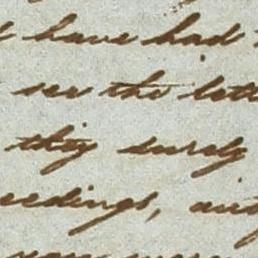 have had
see the lett
they surely
eedings, and